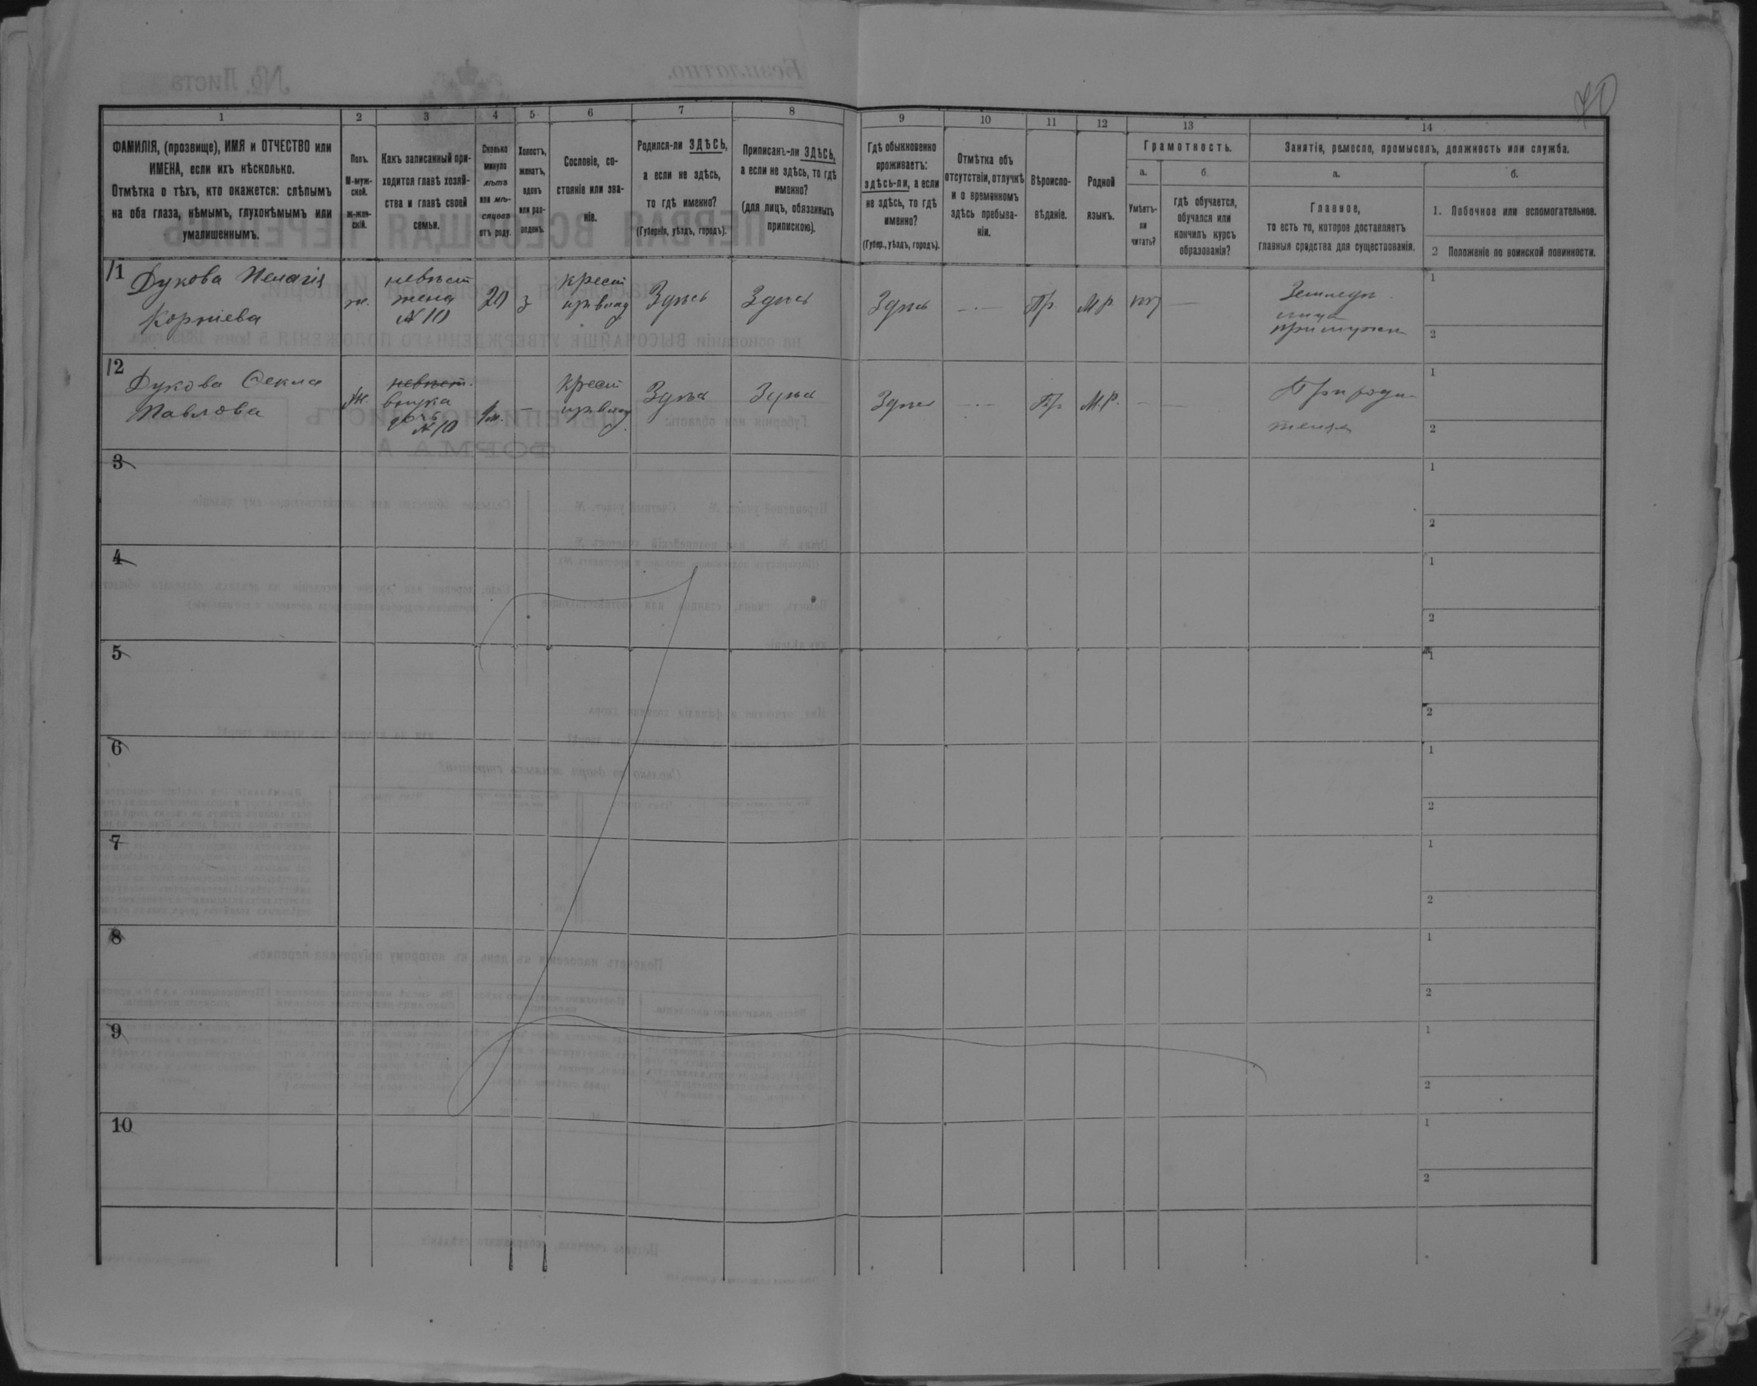 40
1 2 3 4 5 6 7 8 9 10 11 12 13 14
ФАМИЛІЯ, (прозвище), ИМЯ и ОТЧЕСТВО или
ИМЕНА, если ихъ нѣсколько.
Отмѣтка о тѣхъ, кто окажется: слѣпымъ
на оба глаза, нѣмымъ, глухонѣмымъ или
умалишеннымъ.
Полъ.
М-муж-
ской.
Ж-жен-
скій.
Какъ записанный при-
ходится главѣ хозяй-
ства и главѣ своей
семьи.
Сколько
минуло
лѣтъ
или мѣ-
сяцевъ
отъ роду.
Холостъ,
женатъ,
вдовъ
или раз-
веденъ.
Сословіе, со-
стояніе или зва-
ніе.
Родился-ли ЗДѢСЬ,
а если не здѣсь,
то гдѣ именно?
(Губернія, уѣздъ, городъ).
Приписанъ-ли ЗДѢСЬ,
а если не здѣсь, то гдѣ
именно?
(для лицъ, обязанныхъ
припискою).
Гдѣ обыкновенно
проживаетъ:
здѣсь-ли, а если
не здѣсь, то гдѣ
именно?
(Губер., уѣздъ, городъ).
Отмѣтка объ
отсутствіи, отлучкѣ
и о временномъ
здѣсь пребыва-
ніи.
Вѣроиспо-
вѣданіе.
Родной
языкъ.
Грамотность.
а.
Умѣетъ-
ли
читать?
б.
гдѣ обучается,
обучался или
кончилъ курсъ
образованія?
Занятія, ремесло, промыселъ, должность или служба.
а.
Главное,
то есть то, которое доставляетъ
главныя средства для существованія.
б.
1. Побочное или вспомогательное.
2 Положеніе по воинской повинности.
11 Дукова Пелагія
Корніева
ж.
невѣст
жена
№ 10
20
з
крест
Здѣсь
Здѣсь
Здѣсь
—
Пр.
М.р.
—
Земледѣ
при мужѣ
1
2
12 Дукова Ѳекла
Павлова
ж.
невѣст.
внучка
дочь
№ 10
1 м.
—
крест
Здѣсь
Здѣсь
Здѣсь
—
Пр.
М.р.
—
При роди-
теляхъ
1
2
3
1
2
4
1
2
5
1
2
6
1
2
7
1
2
8
1
2
9
1
2
10
1
2